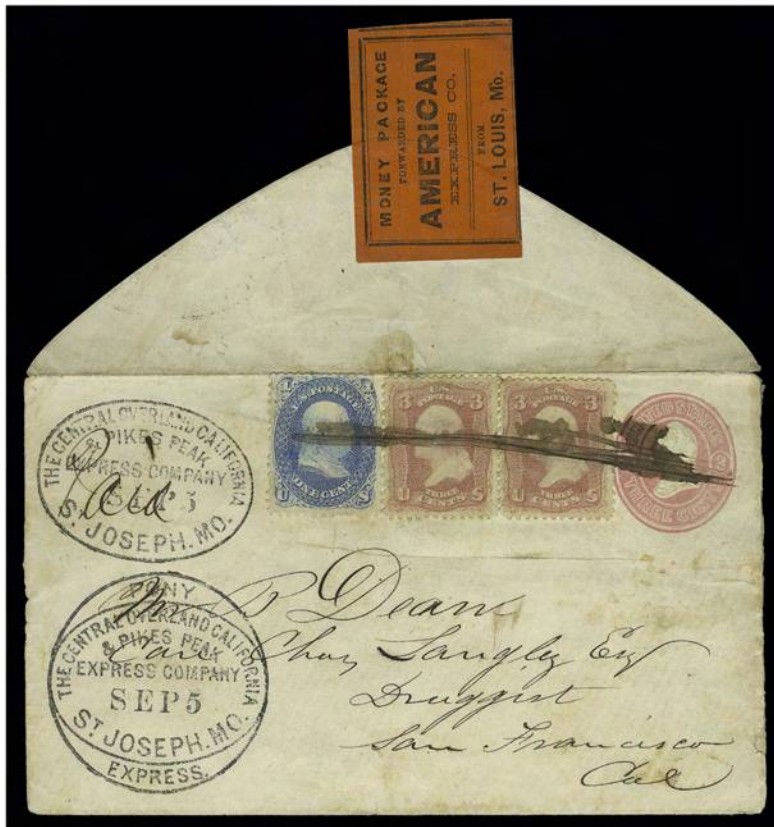 MONEY PACKAGE
FORWARDED BY
AMERICAN
EXPRESS CO.
FROM
ST. LOUIS, Mo.
THE CENTRAL OVERLAND CALIFORNIA
& PIKES PEAK
EXPRESS COMPANY
SEP 5
ST JOSEPH. MO.
Paid
U.S. POSTAGE
ONE CENT
U.S. POSTAGE
3 3
U THREE CENTS S
U.S. POSTAGE
3 3
U THREE CENTS S
THREE CENTS
PONY
THE CENTRAL OVERLAND CALIFORNIA
& PIKES PEAK
EXPRESS COMPANY
SEP 5
ST JOSEPH. MO.
EXPRESS.
P Deam
Care Chas Langley Esq
Druggist
San Francisco
Cal